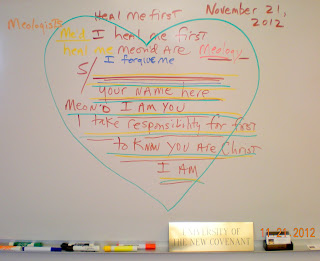 Heal me first
November 21,
2012
Meologists
Me.1 I heal me first
heal me meond are Meology
S/ I forgive me
YOUR NAME here
MEON'D I AM YOU
I take responsibility for first
to KNOW YOU ARE CHRIST
I AM
UNIVERSITY OF
THE NEW COVENANT
11 21 2012